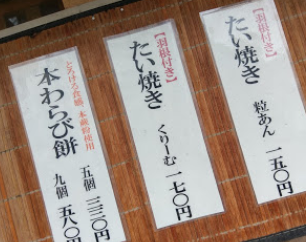 【羽根付き】
たい焼き
粒あん 一五〇円
【羽根付き】
たい焼き
くりーむ 一七〇円
とろける食感、本蕨粉使用
本わらび餅
五個 三三〇円
九個 五八〇円